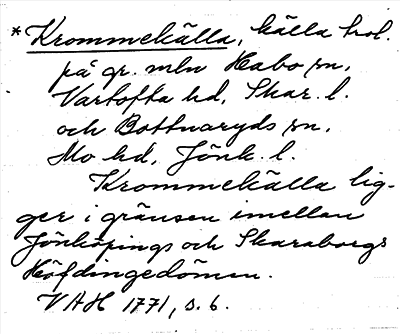 *Krommekälla, källa trol.
på gr. mln Habo sn,
Vartofta hd, Skar. l.
och Bottnaryds sn,
Mo hd, Jönk. l.
Krommekälla lig-
ger i gränsen imellan
Jönköpings och Skaraborgs
Höfdingedömen.
VAH 1771, s. 6.